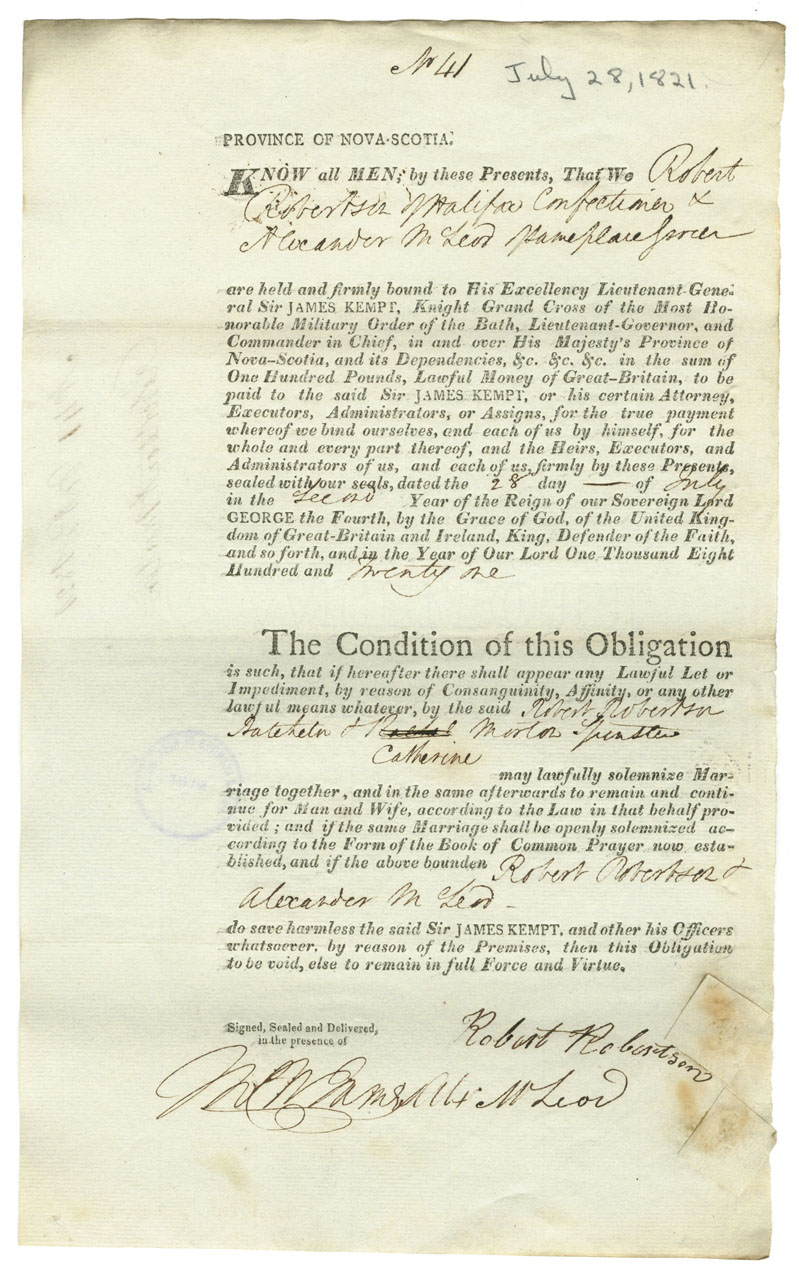 No 41
July 28, 1821.
PROVINCE OF NOVA-SCOTIA.
KNOW all MEN, by these Presents, That We Robert
Robertson of Halifax Confectioner &
Alexander McLeod of same place Grocer
are held and firmly bound to His Excellency Lieutenant-Gene-
ral Sir JAMES KEMPT, Knight Grand Cross of the Most Ho-
norable Military Order of the Bath, Lieutenant-Governor, and
Commander in Chief, in and over His Majesty's Province of
Nova-Scotia, and its Dependencies, &c. &c. &c. in the sum of
One Hundred Pounds, Lawful Money of Great-Britain, to be
paid to the said Sir JAMES KEMPT, or his certain Attorney,
Executors, Administrators, or Assigns, for the true payment
whereof we bind ourselves, and each of us by himself, for the
whole and every part thereof, and the Heirs, Executors, and
Administrators of us, and each of us, firmly by these Presents,
sealed with our seals, dated the 28 day — of July
in the Second Year of the Reign of our Sovereign Lord
GEORGE the Fourth, by the Grace of God, of the United King-
dom of Great-Britain and Ireland, King, Defender of the Faith,
and so forth, and in the Year of Our Lord One Thousand Eight
Hundred and Twenty one
The Condition of this Obligation
is such, that if hereafter there shall appear any Lawful Let or
Impediment, by reason of Consanguinity, Affinity, or any other
lawful means whatever, by the said Robert Robertson
Batchelor & Rachel Morton Spinster
Catherine
may lawfully solemnize Mar-
riage together, and in the same afterwards to remain and conti-
nue for Man and Wife, according to the Law in that behalf pro-
vided; and if the same Marriage shall be openly solemnized ac-
cording to the Form of the Book of Common Prayer now esta-
blished, and if the above bounden Robert Robertson &
Alexander McLeod -
do save harmless the said Sir JAMES KEMPT, and other his Officers
whatsoever, by reason of the Premises, then this Obligation
to be void, else to remain in full Force and Virtue.
Signed, Sealed and Delivered,
in the presence of
Robert Robertson
Alx McLeod